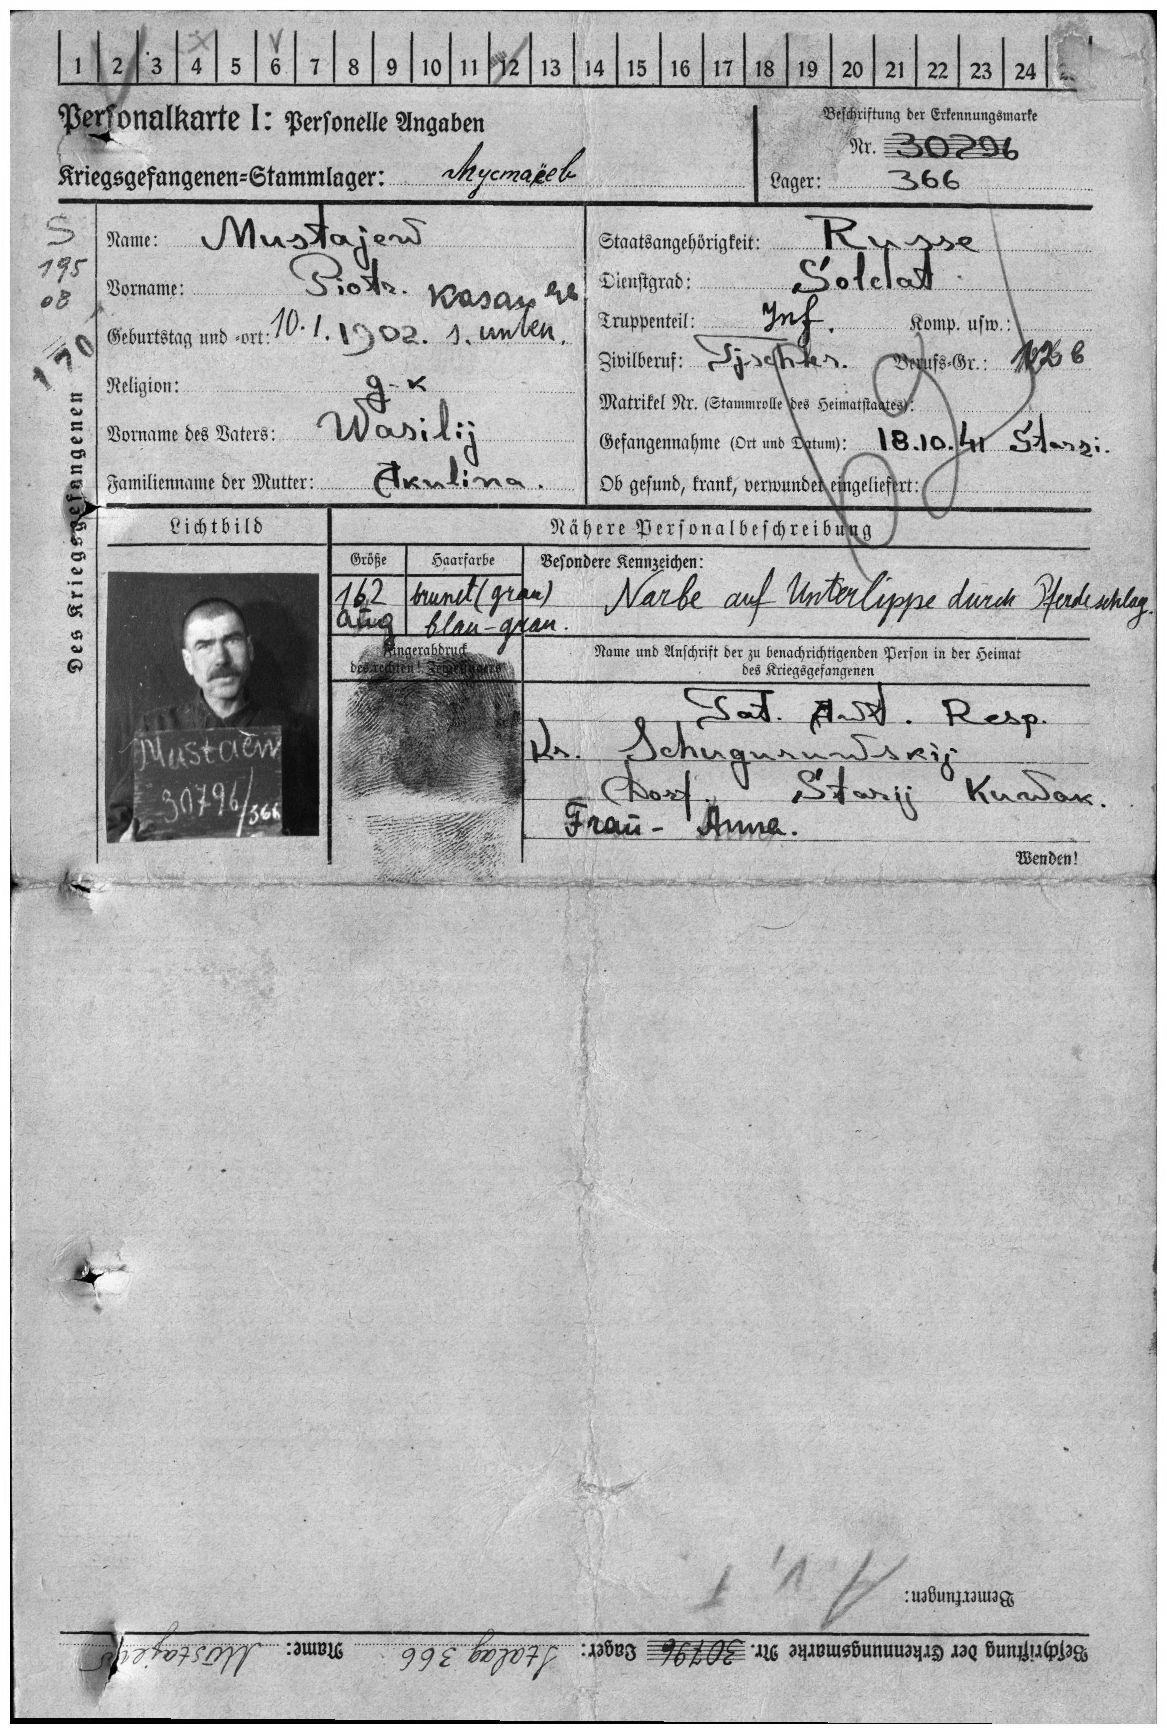 1 2 3 4 5 6 7 8 9 10 11 12 13 14 15 16 17 18 19 20 21 22 23 24
Personalkarte I: Personelle Angaben
Kriegsgefangenen=Stammlager: Мустаев
Beschriftung der Erkennungsmarke
Nr. 30796
Lager: 366
S
195
08
170
Des Kriegsgefangenen
Name: Mustajew
Vorname: Piotr.
Geburtstag und -ort: 10.1.1902. Kasan
Religion: g-k
Vorname des Vaters: Wasilij
Familienname der Mutter: Akulina.
Staatsangehörigkeit: Russe
Dienstgrad: Soldat
Truppenteil: Inf. Komp. usw.:
Zivilberuf: Tischler. Berufs-Gr.:
Matrikel Nr. (Stammrolle des Heimatstaates):
Gefangennahme (Ort und Datum): 18.10.41 Starzi.
Ob gesund, krank, verwundet eingeliefert:
Lichtbild
Mustaew
30796/366
Nähere Personalbeschreibung
Größe Haarfarbe Besondere Kennzeichen:
162 brunet (grau) Narbe auf Unterlippe durch Pferdeschlag.
Aug blau-grau.
Fingerabdruck
des rechten! Zeigefingers
Name und Anschrift der zu benachrichtigenden Person in der Heimat
des Kriegsgefangenen
Tat. Aut. Resp.
Kr. Schugurowskij
Dorf. Starij Kuwak.
Frau- Anna.
Wenden!
Bemerkungen:
Beschriftung der Erkennungsmarke Nr. 30796 Lager: Stalag 366 Name: Mustajew